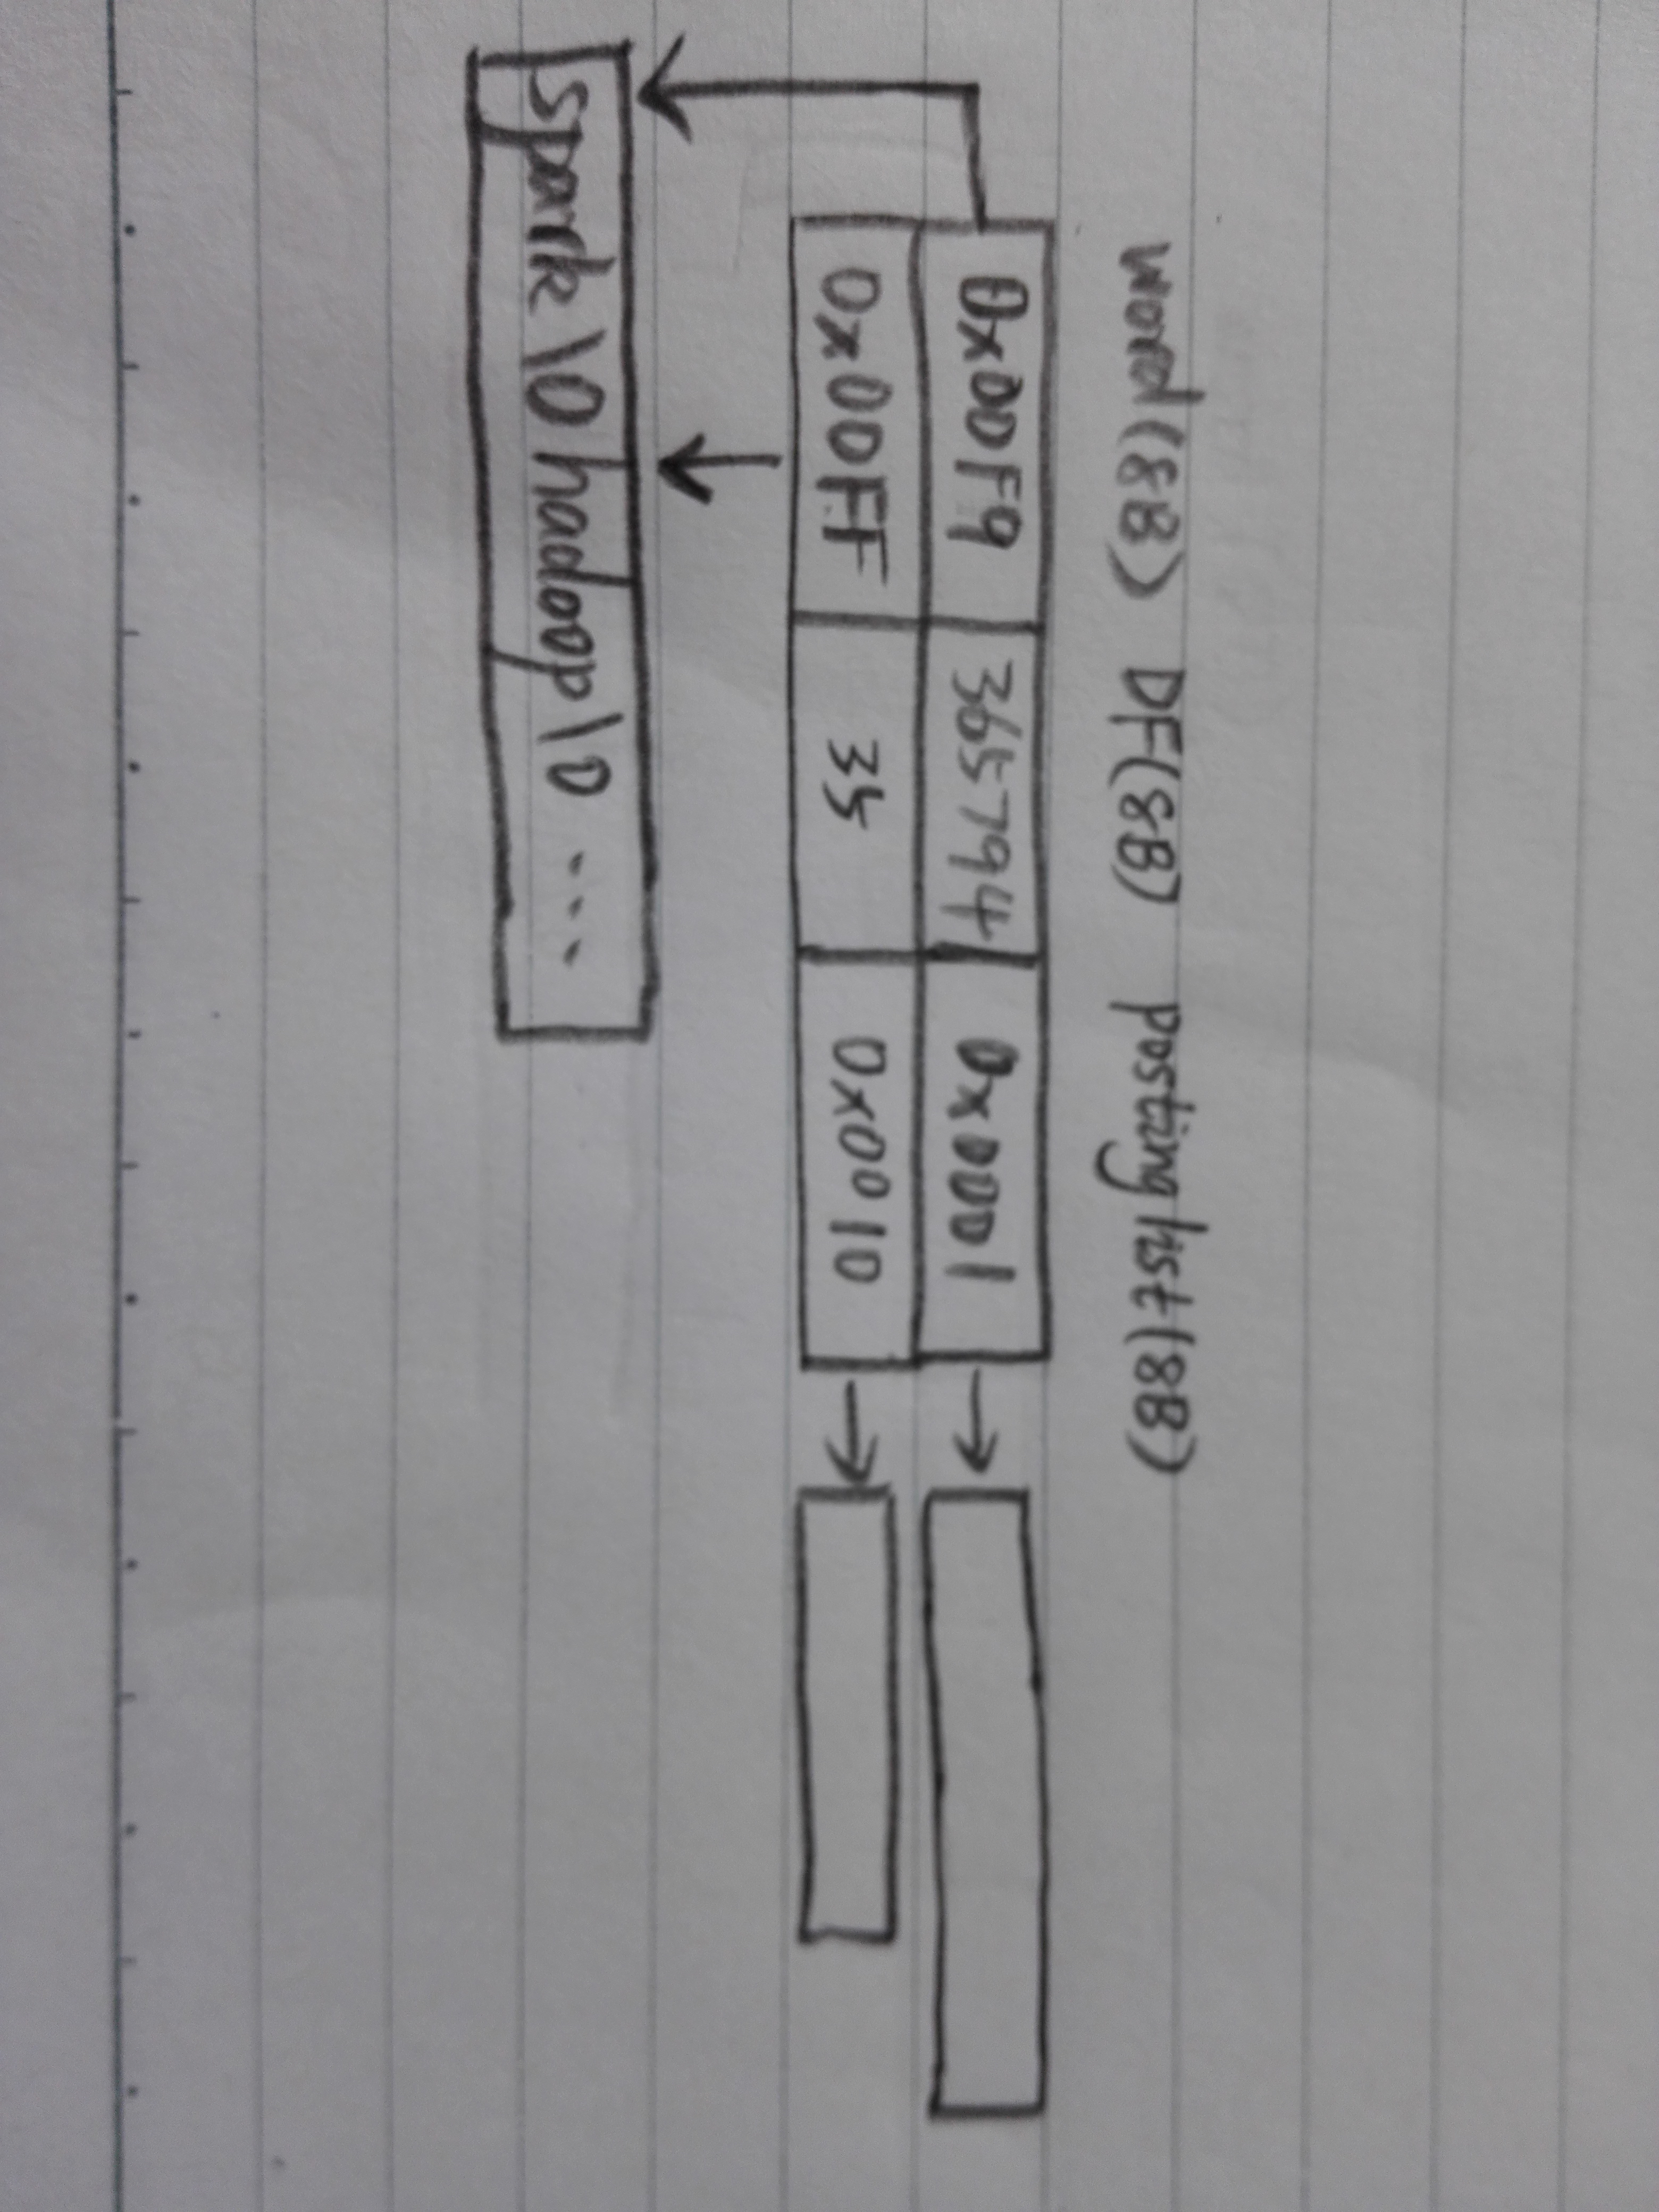 word(8B) DF(8B) posting list(8B)
0x00F9 365794 0x0001
0x00FF 35 0x0010
spark\0hadoop\0...